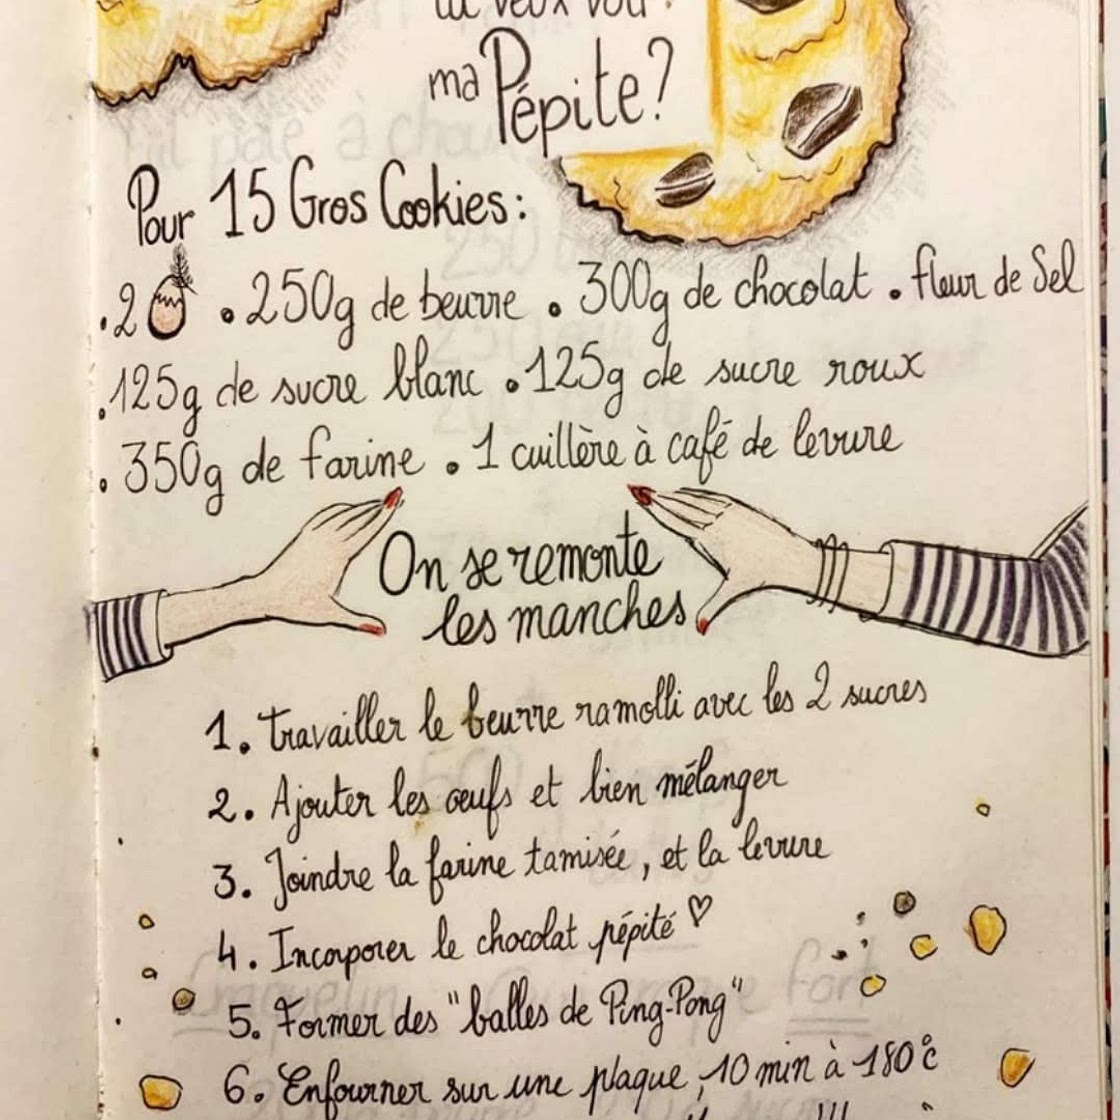 tu veux voir
ma Pépite?
Pour 15 Gros Cookies:
.2 • 250g de beurre • 300g de chocolat • fleur de Sel
• 125g de sucre blanc • 125g de sucre roux
• 350g de farine • 1 cuillère à café de levure
On se remonte
les manches
1. Travailler le beurre ramolli avec les 2 sucres
2. Ajouter les œufs et bien mélanger
3. Joindre la farine tamisée, et la levure
4. Incorporer le chocolat pépité ♡
5. Former des "balles de Ping-Pong"
6. Enfourner sur une plaque, 10 min à 180°c